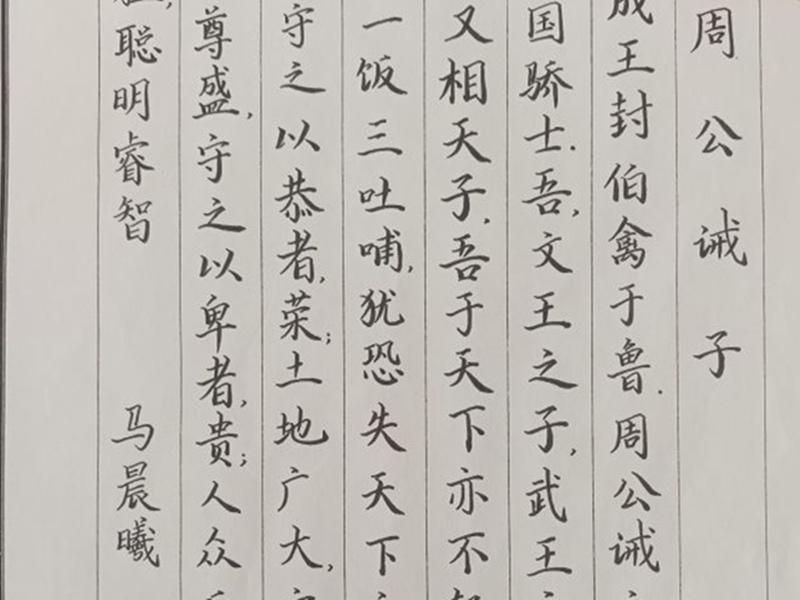 周公诫子
成王封伯禽于鲁.周公诫
国骄士.吾,文王之子,武王
又相天子.吾于天下亦不
一饭三吐哺,犹恐失天下
守之以恭者,荣;土地广大,
尊盛,守之以卑者,贵;人众
聪明睿智
马晨曦